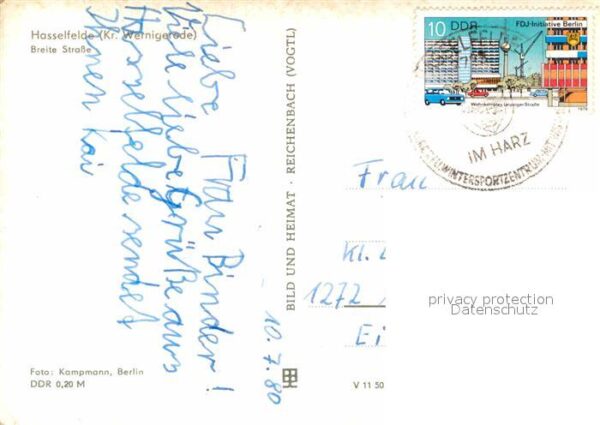 Hasselfelde (Kr. Wernigerode)
Breite Straße
Liebe Frau Binder!
Viele liebe Grüße aus
Hasselfelde sendet
Ihnen Kai
Foto: Kampmann, Berlin
DDR 0,20 M
BILD UND HEIMAT · REICHENBACH (VOGTL)
10.7.80
V 11 50
10 DDR
FDJ-Initiative Berlin
Wohnkomplex Leipziger Straße
1979
IM HARZ
WINTERSPORTZENTRUM
Frau
Kl.
1272
Ei
privacy protection
Datenschutz